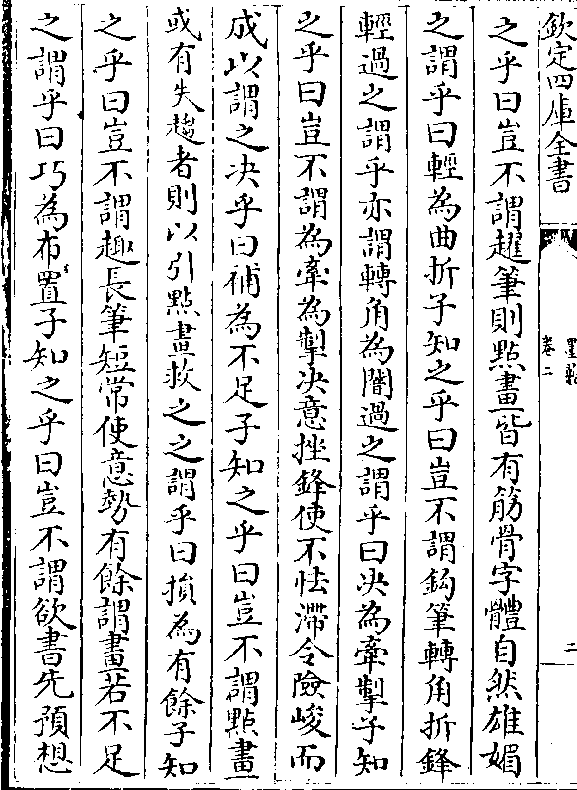 欽定四庫全書
墨藪
卷二
二
之乎曰豈不謂趯筆則點畫皆有筋骨字體自然雄媚
之謂乎曰輕為曲折子知之乎曰豈不謂鈎筆轉角折鋒
輕過之謂乎亦謂轉角為闇過之謂乎曰决為牽掣子知
之乎曰豈不謂為牽為掣决意挫鋒使不怯滯令險峻而
成以謂之决乎曰補為不足子知之乎曰豈不謂㸃畫
或有失趯者則以引點畫救之之謂乎曰損為有餘子知
之乎曰豈不謂趣長筆短常使意勢有餘謂畫若不足
之謂乎曰巧為布置子知之乎曰豈不謂欲書先預想